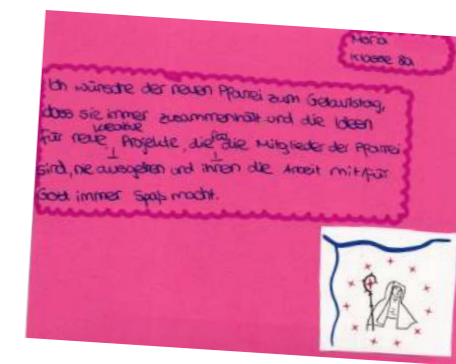 Maria
Klasse 8a
Ich wünsche der neuen Pfarrei zum Geburtstag,
dass sie immer zusammenhält und die Ideen
für neue kreative Projekte, die für die Mitglieder der Pfarrei
sind, nie ausgehen und ihnen die Arbeit mit/für
Gott immer Spaß macht.